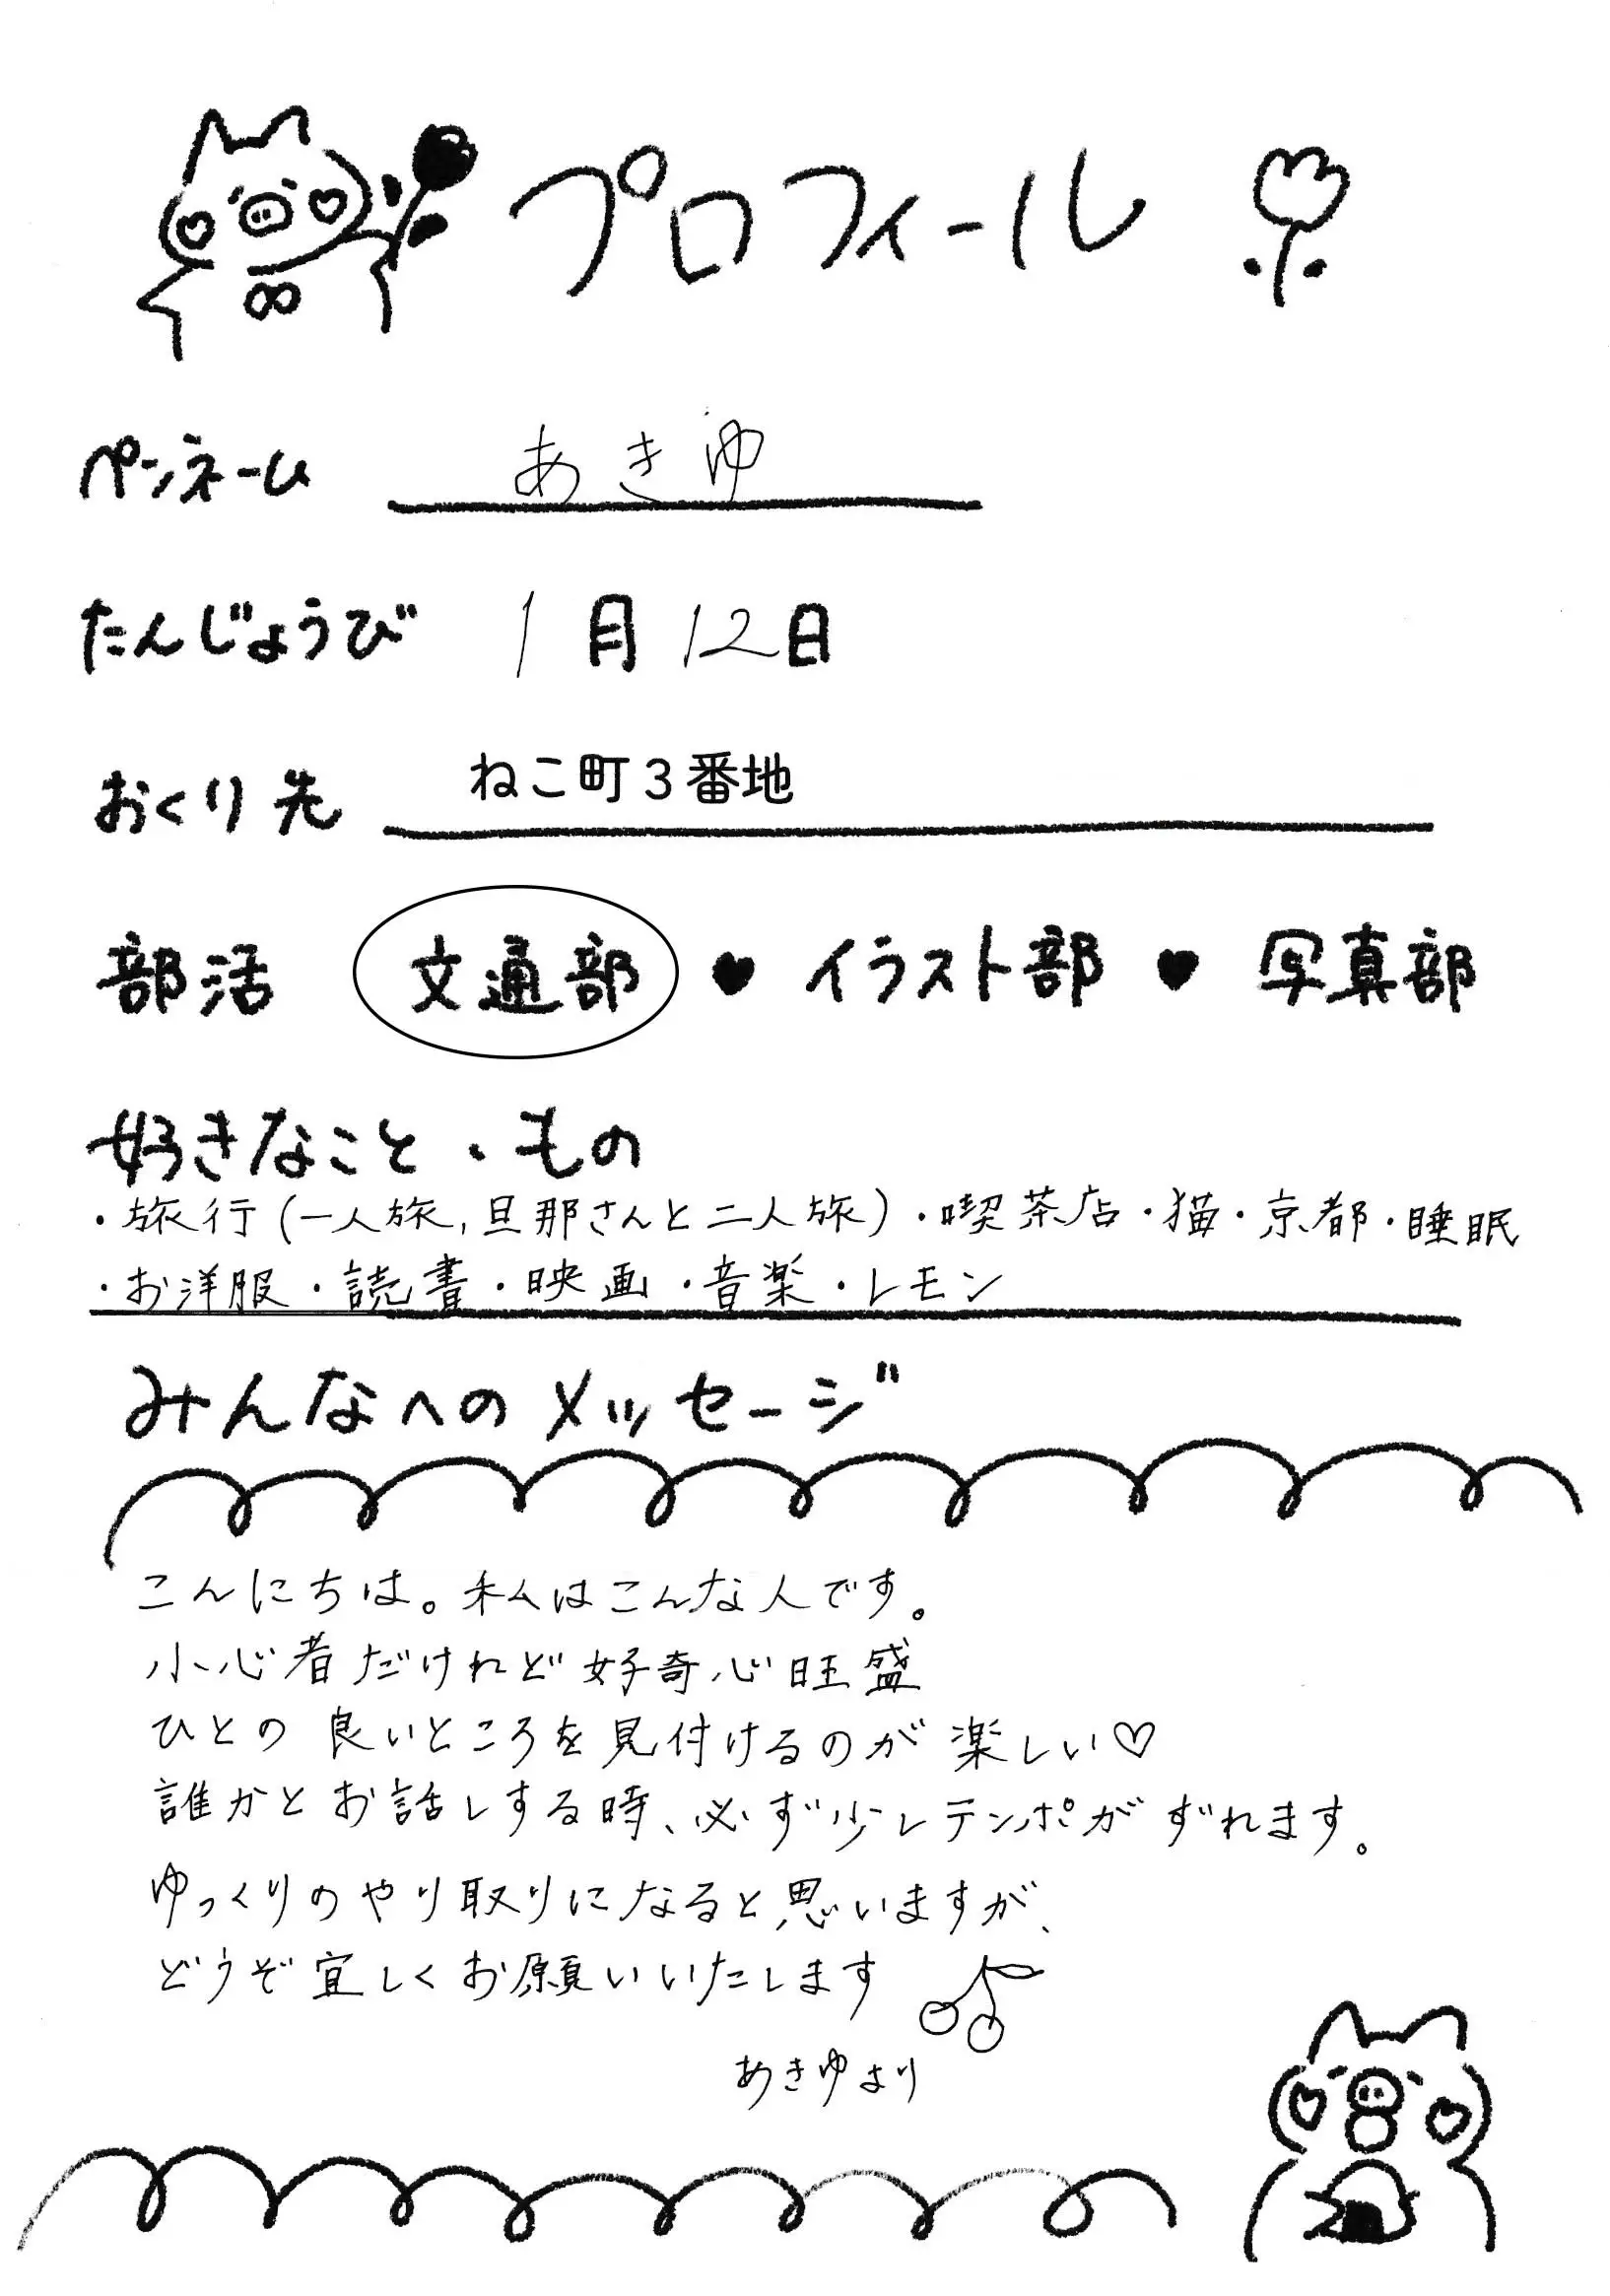 プロフィール
ペンネーム あきゆ
たんじょうび 1月12日
おくり先 ねこ町3番地
部活 文通部 ♥ イラスト部 ♥ 写真部
好きなこと・もの
・旅行(一人旅,旦那さんと二人旅)・喫茶店・猫・京都・睡眠
・お洋服・読書・映画・音楽・レモン
みんなへのメッセージ
こんにちは。私はこんな人です。
小心者だけれど好奇心旺盛
ひとの良いところを見付けるのが楽しい♡
誰かとお話しする時、必ず少しテンポがずれます。
ゆっくりのやり取りになると思いますが、
どうぞ宜しくお願いいたします
あきゆより